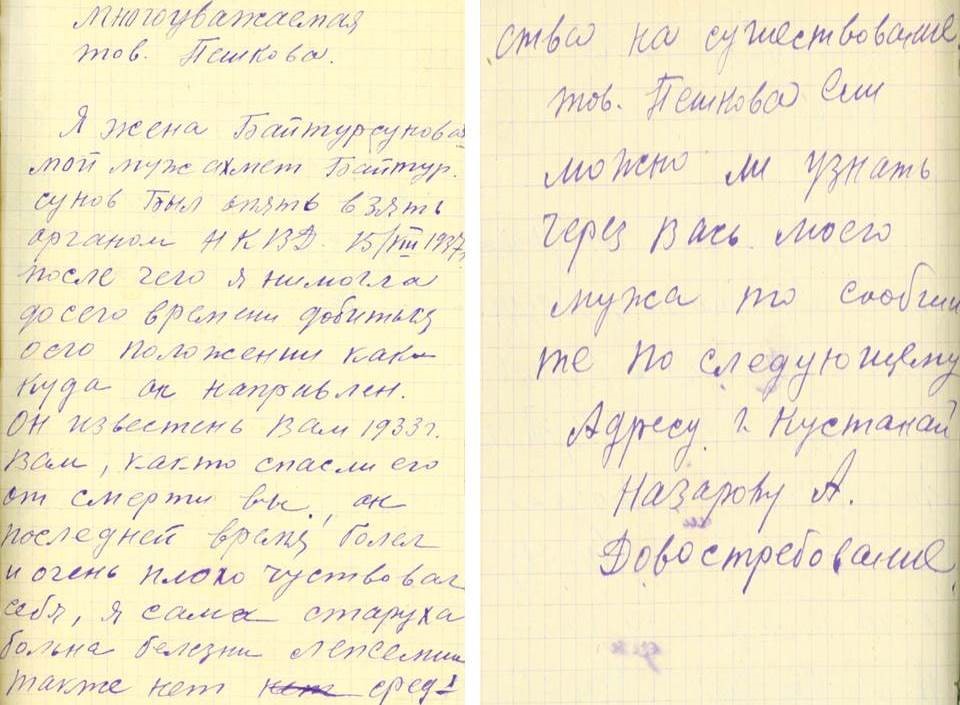 Многоуважаемая
тов. Пешкова.
Я жена Байтурсунова
мой муж ахмет Байтур.
сунов был опять взять
органом НКВД. 15/VIII 1937,
после чего я нимогла
досего времени добиться
осего положении как
куда он направлен.
Он известень Вам 1933 г.
Вам, както спасли его
от смерти вы, он
последней время болел
и очень плохо чуствовал
себя, я сама старуха
больна белезни
также нет нет сред-
ства на существование.
тов. Пешкова Если
можно ли узнать
через Вась моего
мужа то сообши
те по следующему
Адресу г. Кустанай
Назарову А.
Довостребование